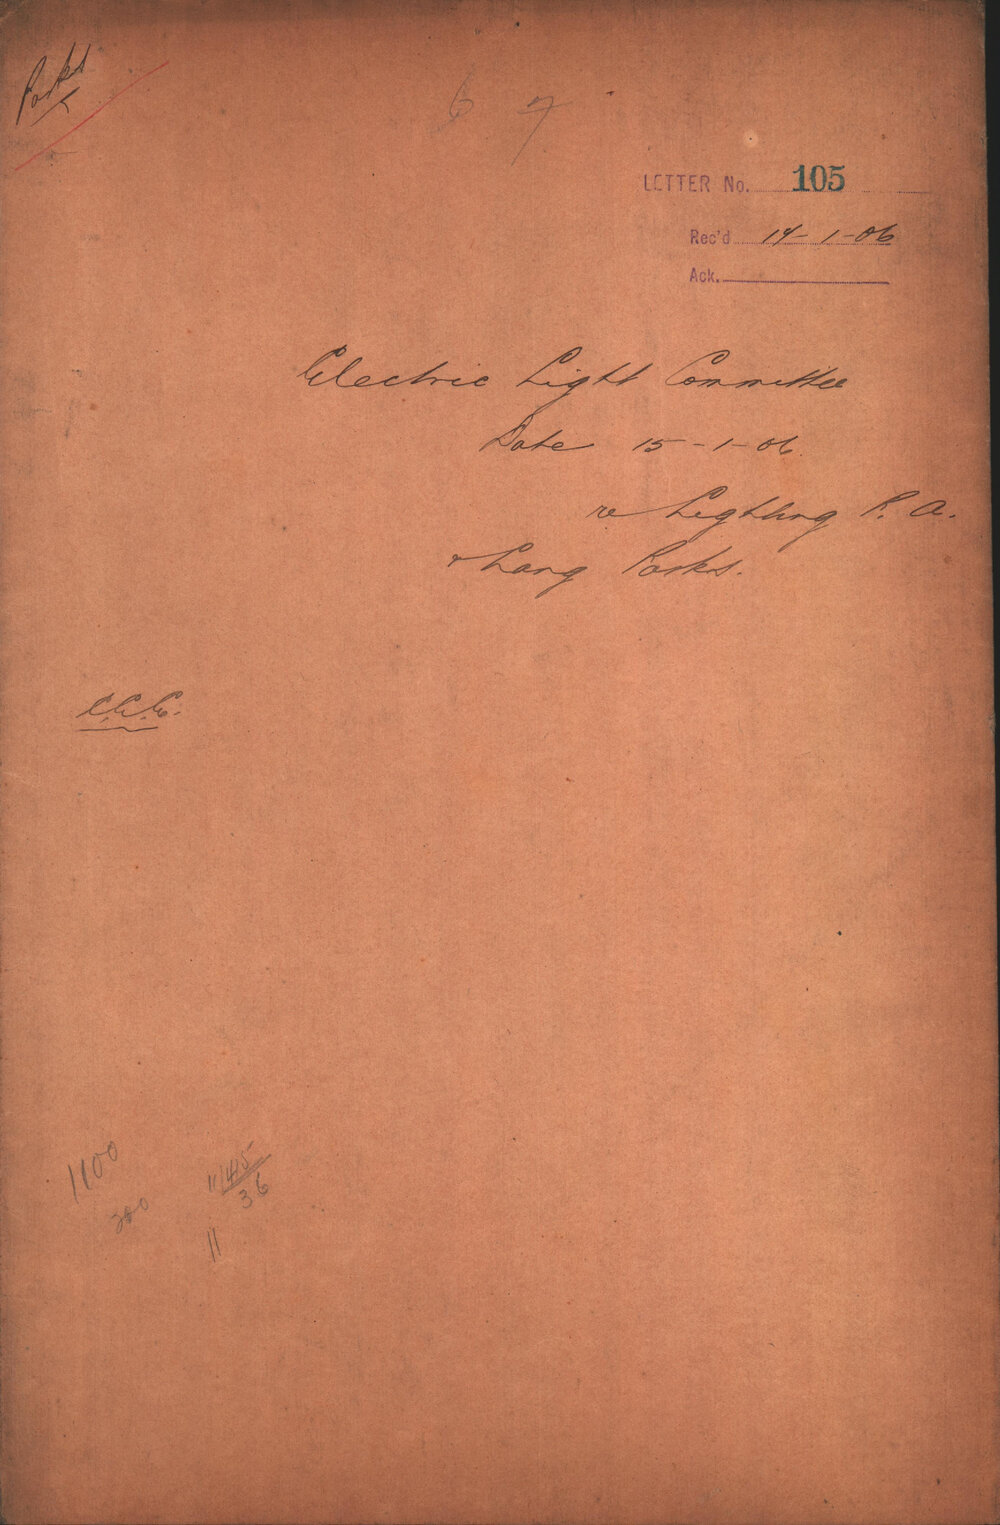 Parks
6 7
LETTER No. 105
Rec'd 14-1-06
Ack.
Electric Light Committee
Date 15-1-06.
re Lighting P. A.
& Lang Parks.
C.C.C.
1100
200
36
11